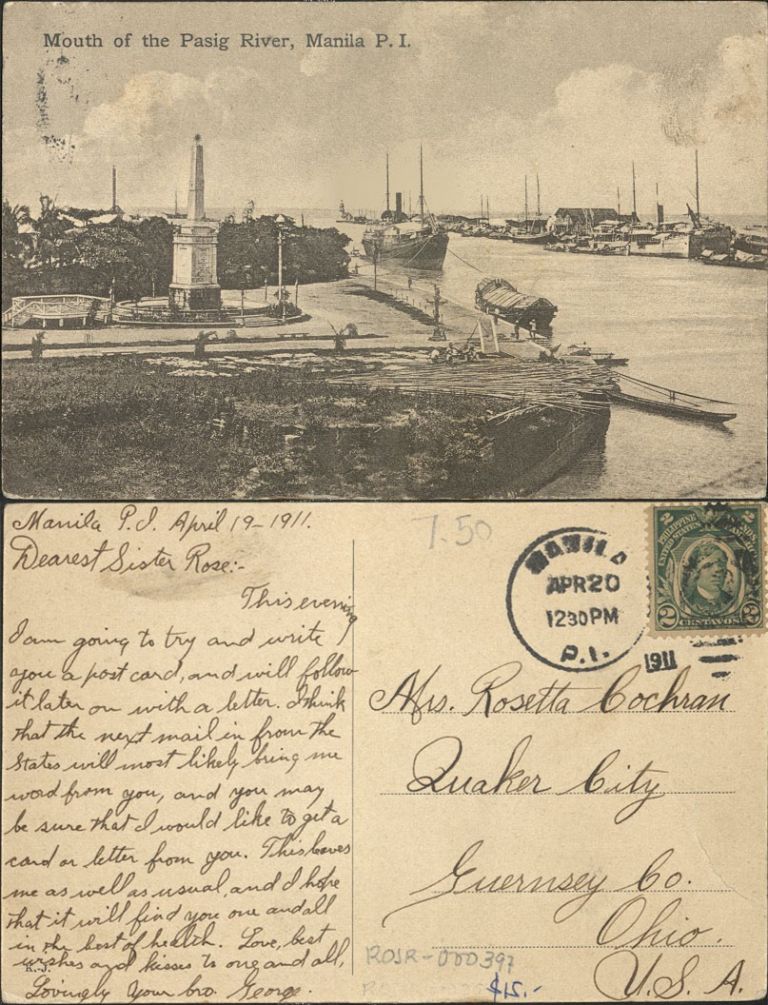 Mouth of the Pasig River, Manila P. I.
Manila P. I. April 19-1911.
Dearest Sister Rose:-
This evening
I am going to try and write
you a post card, and will follow
it later on with a letter. I think
that the next mail in from the
States will most likely bring me
word from you, and you may
be sure that I would like to get a
card or letter from you. This leaves
me as well as usual, and I hope
that it will find you one and all
in the best of health. Love, best
wishes and kisses to one and all,
K. J.
Lovingly Your bro. George.
7.50
MANILA
APR 20
12 30 PM
P. I.
1911
2 2
PHILIPPINE ISLANDS
UNITED STATES OF AMERICA
2 CENTAVOS 2
Mrs. Rosetta Cochran
Quaker City
Guernsey Co.
Ohio.
U. S. A.
ROSR-000397
$15.-